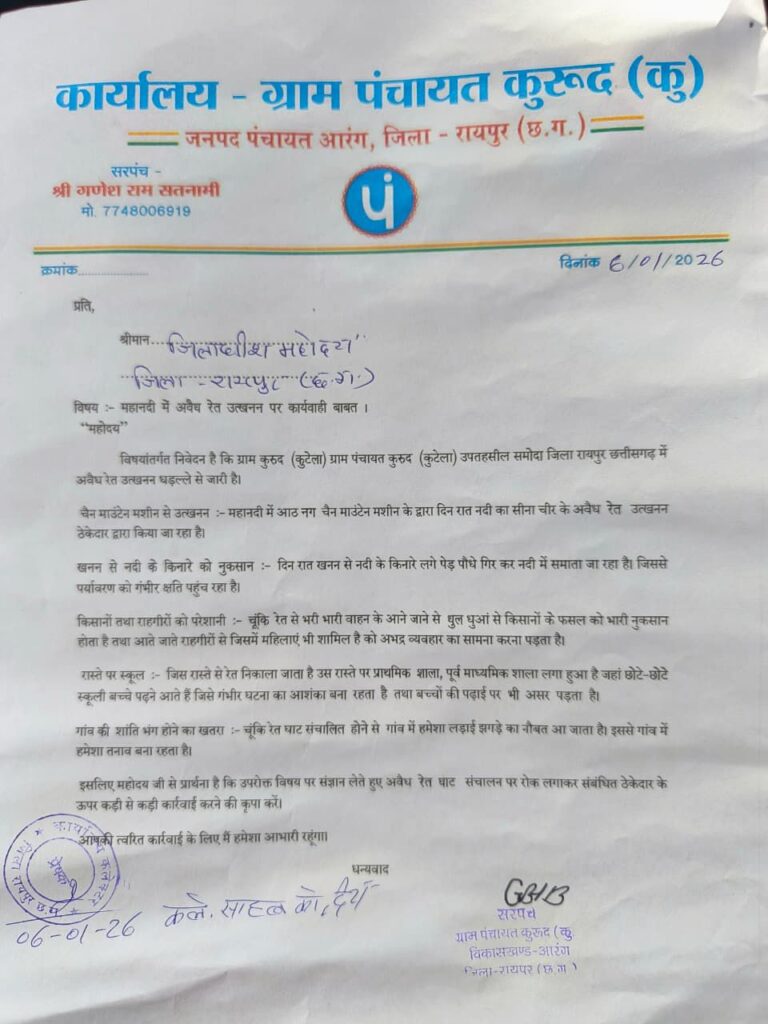 कार्यालय - ग्राम पंचायत कुरूद (कु)
जनपद पंचायत आरंग, जिला - रायपुर (छ.ग.)
सरपंच -
श्री गणेश राम सतनामी
मो. 7748006919
पं
क्रमांक....................
दिनांक 6/01/2026
प्रति,
श्रीमान...जिलाधीश महोदय
जिला - रायपुर (छ.ग.)
विषय :- महानदी में अवैध रेत उत्खनन पर कार्यवाही बाबत ।
"महोदय"
विषयांतर्गत निवेदन है कि ग्राम कुरुद (कुटेला) ग्राम पंचायत कुरुद (कुटेला) उपतहसील समोदा जिला रायपुर छत्तीसगढ़ में
अवैध रेत उत्खनन धड़ल्ले से जारी है।
चैन माउंटेन मशीन से उत्खनन :- महानदी में आठ नग चैन माउंटेन मशीन के द्वारा दिन रात नदी का सीना चीर के अवैध रेत उत्खनन
ठेकेदार द्वारा किया जा रहा है।
खनन से नदी के किनारे को नुकसान :- दिन रात खनन से नदी के किनारे लगे पेड़ पौधे गिर कर नदी में समाता जा रहा है। जिससे
पर्यावरण को गंभीर क्षति पहुंच रहा है।
किसानों तथा राहगीरों को परेशानी :- चूंकि रेत से भरी भारी वाहन के आने जाने से धुल धुआं से किसानों के फसल को भारी नुकसान
होता है तथा आते जाते राहगीरों से जिसमें महिलाएं भी शामिल है को अभद्र व्यवहार का सामना करना पड़ता है।
रास्ते पर स्कूल :- जिस रास्ते से रेत निकाला जाता है उस रास्ते पर प्राथमिक शाला, पूर्व माध्यमिक शाला लगा हुआ है जहां छोटे-छोटे
स्कूली बच्चे पढ़ने आते हैं जिसे गंभीर घटना का आशंका बना रहता है तथा बच्चों की पढ़ाई पर भी असर पड़ता है।
गांव की शांति भंग होने का खतरा :- चूंकि रेत घाट संचालित होने से गांव में हमेशा लड़ाई झगड़े का नौबत आ जाता है। इससे गांव में
हमेशा तनाव बना रहता है।
इसलिए महोदय जी से प्रार्थना है कि उपरोक्त विषय पर संज्ञान लेते हुए अवैध रेत घाट संचालन पर रोक लगाकर संबंधित ठेकेदार के
ऊपर कड़ी से कड़ी कार्रवाई करने की कृपा करें।
आपकी त्वरित कार्रवाई के लिए मैं हमेशा आभारी रहूंगा।
धन्यवाद
कार्यालय कलेक्टर
जिला रायपुर छ.ग.
06-01-26
कले. साहब को दिया
सरपंच
ग्राम पंचायत कुरूद (कु
विकासखण्ड-आरंग
जिला-रायपुर (छ ग )